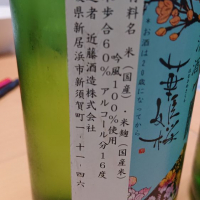 華姫桜
お酒は20歳になってから。
材料名 米(国産)・米麹(国産米)
吟風100%使用
歩合60% アルコール分16度
者 近藤酒造株式会社
県新居浜市新須賀町一・十一・四六